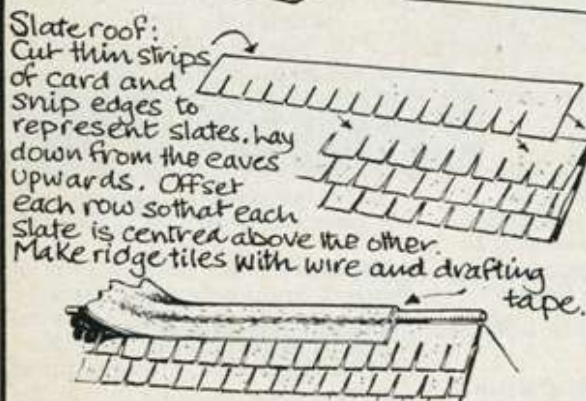 Slate roof:
Cut thin strips
of card and
snip edges to
represent slates. Lay
down from the eaves
upwards. Offset
each row so that each
slate is centred above the other.
Make ridge tiles with wire and drafting
tape.